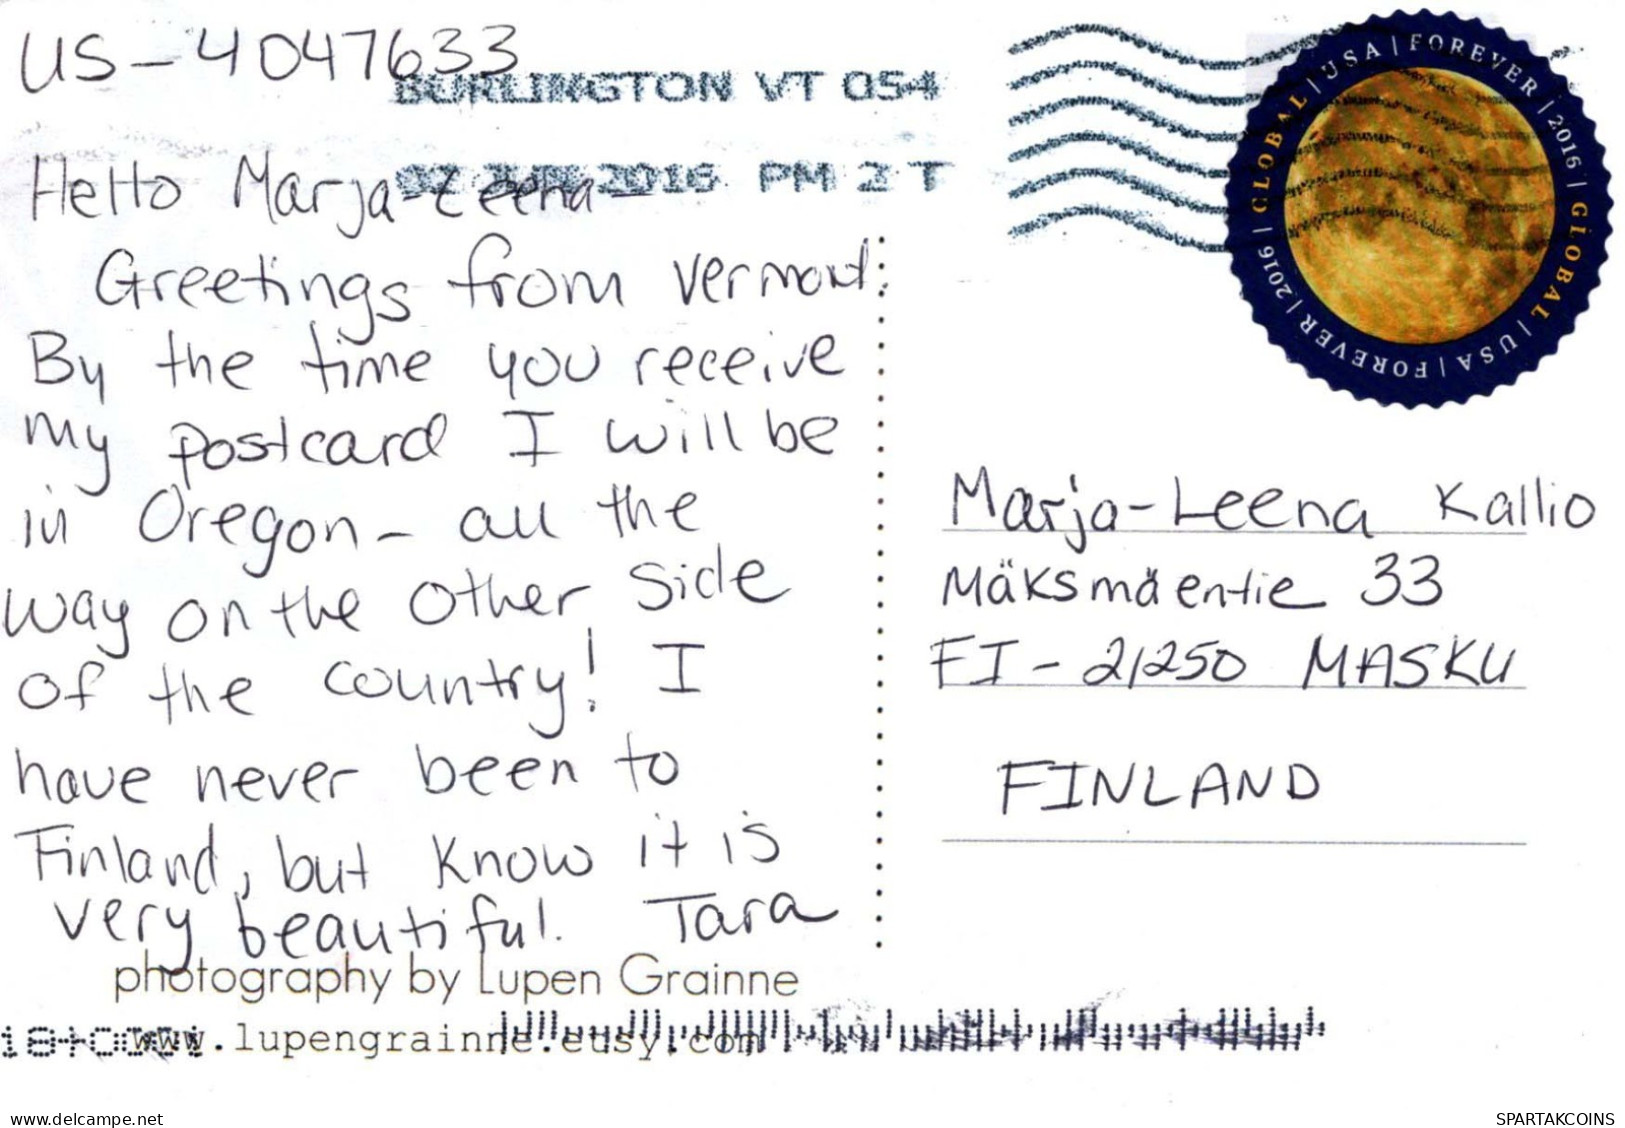 US-4047633
BURLINGTON VT 054
02 JUN 2016 PM 2 T
GLOBAL | USA | FOREVER | 2016 | GLOBAL | USA | FOREVER | 2016 |
Hello Marja-Leena-
Greetings from Vermont.
By the time you receive
my postcard I will be
in Oregon- all the
way on the other side
of the country! I
have never been to
Finland, but know it is
very beautiful. Tara
Marja-Leena Kallio
Mäksmäentie 33
FI-21250 MASKU
FINLAND
photography by Lupen Grainne
www.lupengrainne.etsy.com
www.delcampe.net
SPARTAKCOINS